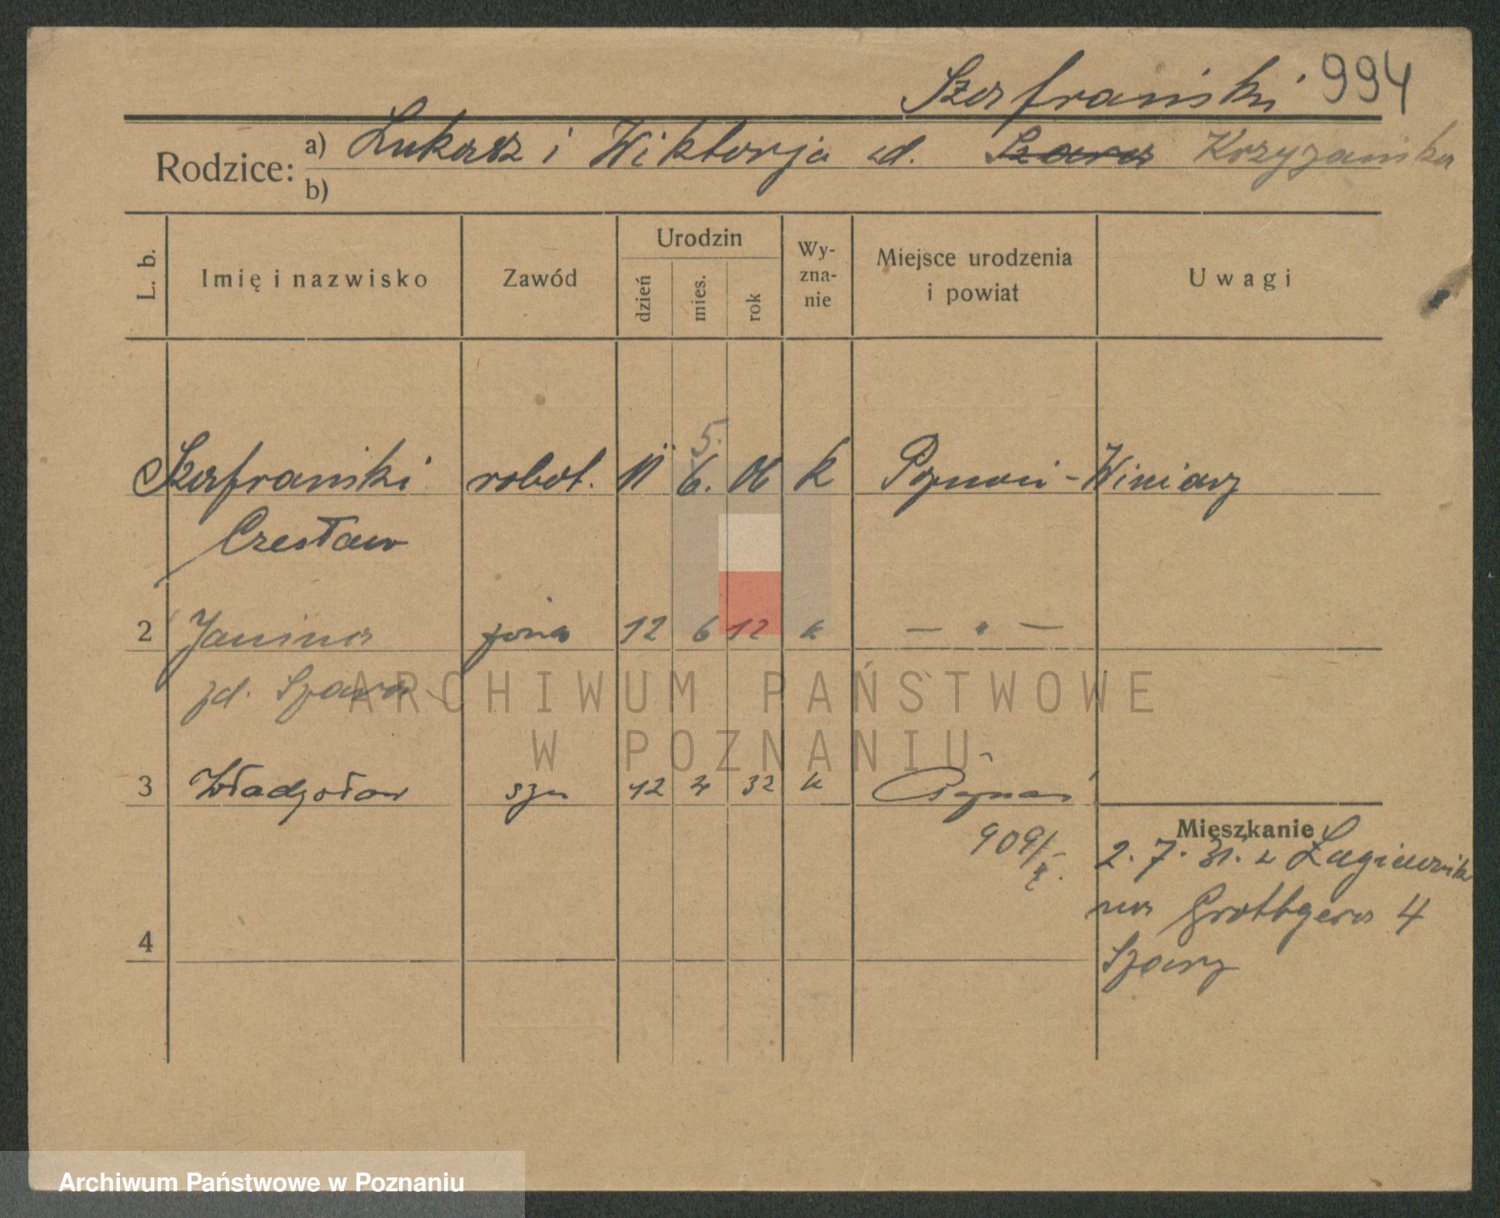 Szafrański 994
Rodzice: a) Łukasz i Wiktorja zd. Szara Krzyżańska
b)
L. b. Imię i nazwisko Zawód Urodzin dzień mies. rok Wy-zna-nie Miejsce urodzenia i powiat Uwagi
5.
Szafrański robot. 11 6. 06 k Poznań - Winiary
Czesław
2 Janina żona 12 6 12 k — " —
zd. Szara
ARCHIWUM PAŃSTWOWE
W POZNANIU
3 Władysław syn 12 4 32 k Poznań
Mieszkanie
909/
2. 7. 31. z Łagiewnik
na Grottgera 4
4
Szary
Archiwum Państwowe w Poznaniu